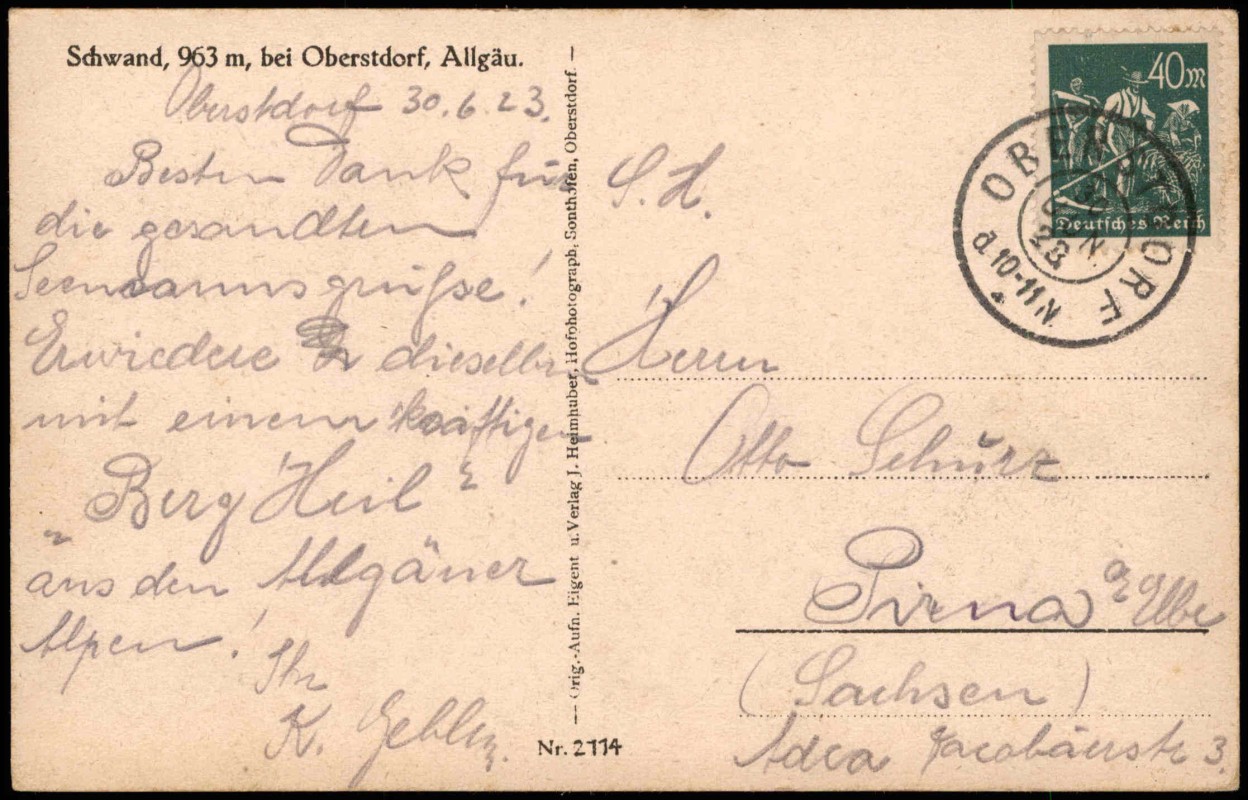 Schwand, 963 m, bei Oberstdorf, Allgäu.
Oberstdorf 30.6.23.
Besten Dank für
die gesandten
Seemannsgrüße!
Erwiedere dieselben
mit einem kräftigen
"Berg Heil"
aus den Allgäuer
Alpen!
Ihr
K.
Orig.-Aufn. Eigent u. Verlag J. Heimhuber, Hofphotograph, Sonthofen, Oberstdorf.
Nr. 2114
40 M
Deutsches Reich
OBERSTDORF
30
JUN.
23
d. 10-11 N.
S. H.
Herrn
Otto Schurz
Pirna a/Elbe
(Sachsen)
Jacobäerstr 3.